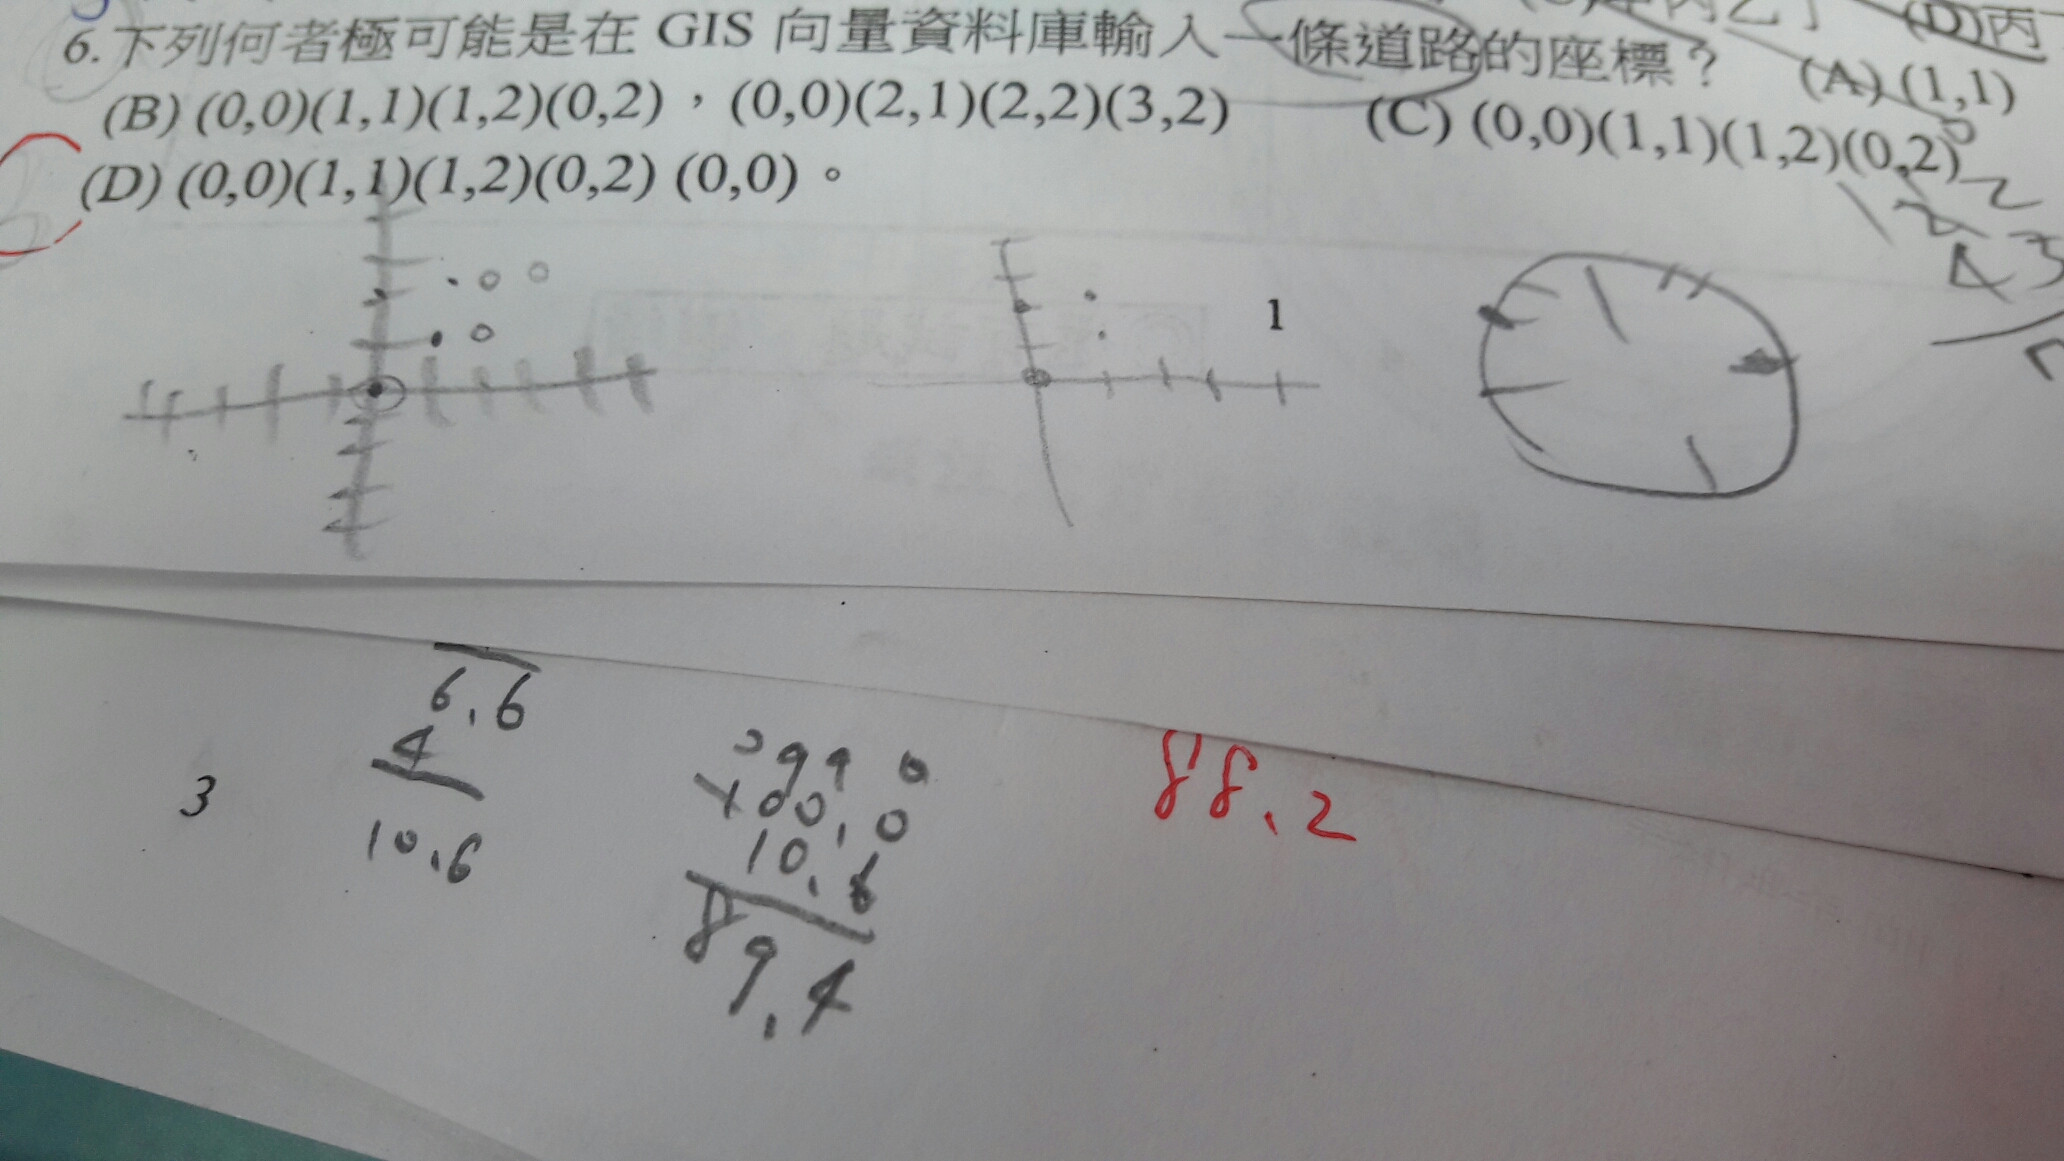 (D)丙
6.下列何者極可能是在 GIS 向量資料庫輸入一條道路的座標？ (A) (1,1)
(B) (0,0)(1,1)(1,2)(0,2)，(0,0)(2,1)(2,2)(3,2) (C) (0,0)(1,1)(1,2)(0,2)
(D) (0,0)(1,1)(1,2)(0,2) (0,0)。
1
3
6.6
4
10.6
100.0
10.6
89.4
88.2